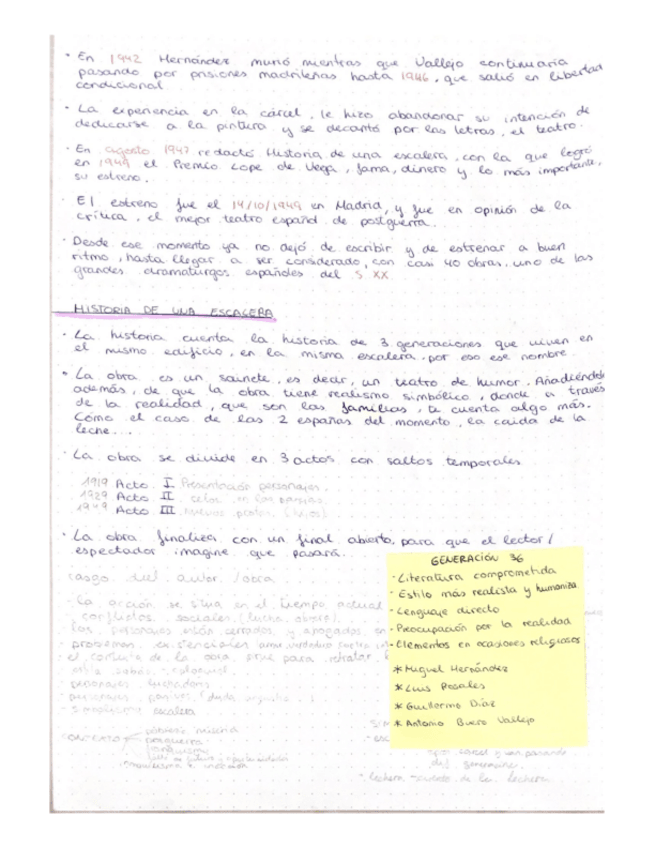 · En 1942 Hernández murió mientras que Vallejo continuaría
pasando por prisiones madrileñas hasta 1946, que salió en libertad
condicional
· La experiencia en la cárcel, le hizo abandonar su intención de
dedicarse a la pintura y se decantó por las letras, el teatro.
· En agosto 1947 redactó Historia de una escalera, con la que logró
en 1949 el Premio Lope de Vega, fama, dinero y lo más importante,
su estreno.
· El estreno fue el 14/10/1949 en Madrid, y fue en opinión de la
crítica, el mejor teatro español de postguerra.
· Desde ese momento ya no dejó de escribir y de estrenar a buen
ritmo, hasta llegar a ser considerado, con casi 40 obras, uno de los
grandes dramaturgos españoles del S XX
HISTORIA DE UNA ESCALERA
· La historia cuenta la historia de 3 generaciones que viven en
el mismo edificio, en la misma escalera, por eso ese nombre.
· La obra es un sainete, es decir, un teatro de humor. Añadiendole
además, de que la obra tiene realismo simbólico, donde a través
de la realidad, que son las familias, te cuenta algo más.
Cómo el caso de las 2 españas del momento, la caida de la
leche...
· La obra se divide en 3 actos con saltos temporales
1919 Acto I Presentación personajes
1929 Acto II celos en las parejas
1949 Acto III (hijos)
· La obra finaliza con un final abierto, para que el lector/
espectador imagine que pasará.
rasgo del autor/obra
· la acción se situa en el tiempo actual
conflictos sociales (lucha obrera)
los personajes están cerrados y ahogados en
problemas
el conjunto de la obra, sirve para retratar
coloquial
personajes luchadores
personajes pasivos
simbolismo escalera
CONTEXTO
miseria
posguerra
franquismo
GENERACIÓN 36
· Literatura comprometida
· Estilo más realista y humaniza
· Lenguaje directo
· Preocupación por la realidad
· Elementos en ocasiones religiosos
* Miguel Hernández
* Luis Rosales
* Guillermo Díaz
* Antonio Buero Vallejo
lechera - cuento de la lechera